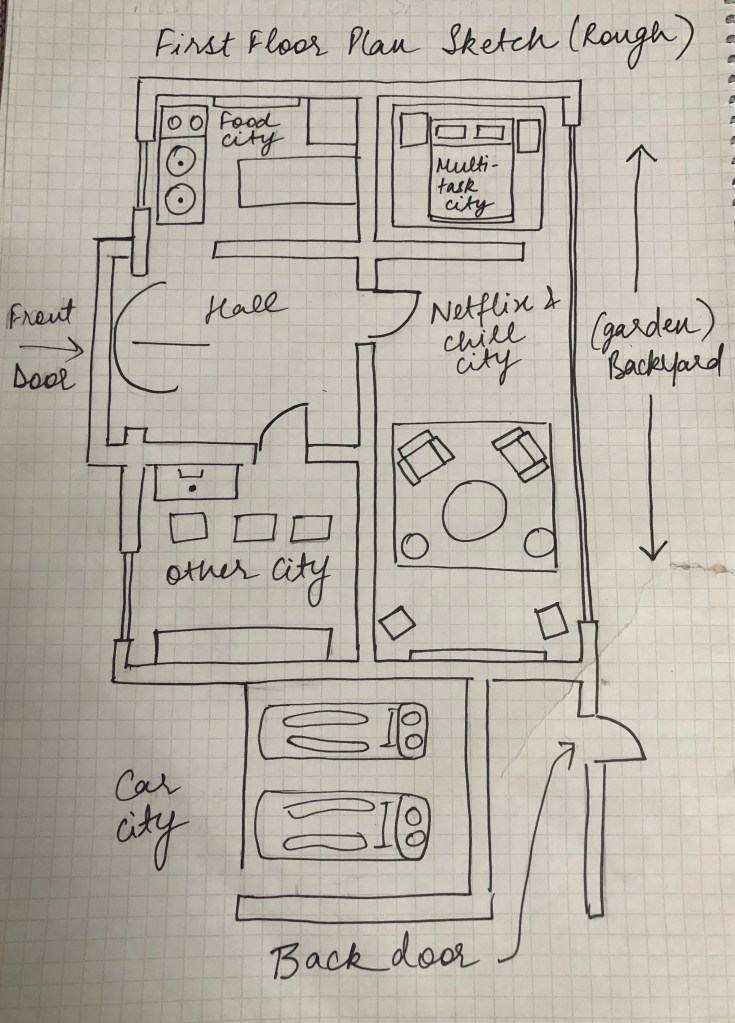 First Floor Plan Sketch (Rough)
Food
city
Multi-
task
city
Hall
Front
Door
Netflix &
chill
city
(garden)
Backyard
other city
Car
city
Back door